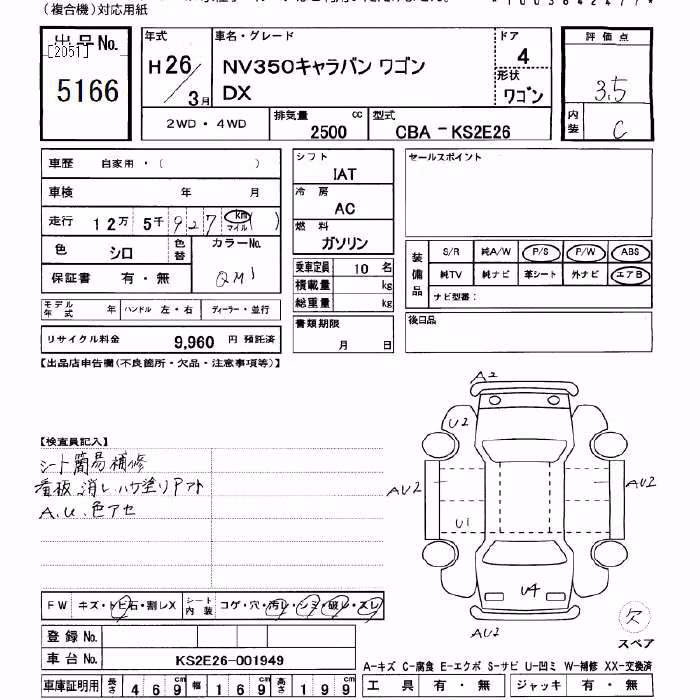 (複合機)対応用紙
*1003642477*
出品No.
[2051]
5166
年式
H 26/3月
車名・グレード
NV350キャラバン ワゴン
DX
ドア
4
形状
ワゴン
評価点
3.5
内装
C
2WD・4WD
排気量
2500 cc
型式
CBA-KS2E26
車歴 自家用・( )
車検 年 月
走行 12万 5千 927 km マイル ( )
色 シロ 色替
カラーNo.
QM1
保証書 有・無
モデル年式 年 ハンドル 左・右 ディーラー・並行
リサイクル料金 9,960 円 預託済
シフト
IAT
冷房
AC
燃料
ガソリン
乗車定員 10 名
積載量 kg
総重量 kg
書類期限
月 日
セールスポイント
装備品
S/R 純A/W P/S P/W ABS
純TV 純ナビ 革シート 外ナビ エアB
ナビ型番:
後日品
【出品店申告欄(不良箇所・欠品・注意事項等)】
【検査員記入】
シート簡易補修
看板消しハケ塗りアト
A.U.色アセ
A2
U2
AU2
AU2
U1
U4
AU2
欠
スペア
FW キズ・トビ石・割レX シート内装 コゲ・穴・汚レ・シミ・破レ・スレ
登録No.
車台No. KS2E26-001949
車庫証明用 長さ 469cm 幅 169cm 高さ 199cm
A-キズ C-腐食 E-エクボ S-サビ U-凹ミ W-補修 XX-交換済
工具 有・無 ジャッキ 有・無